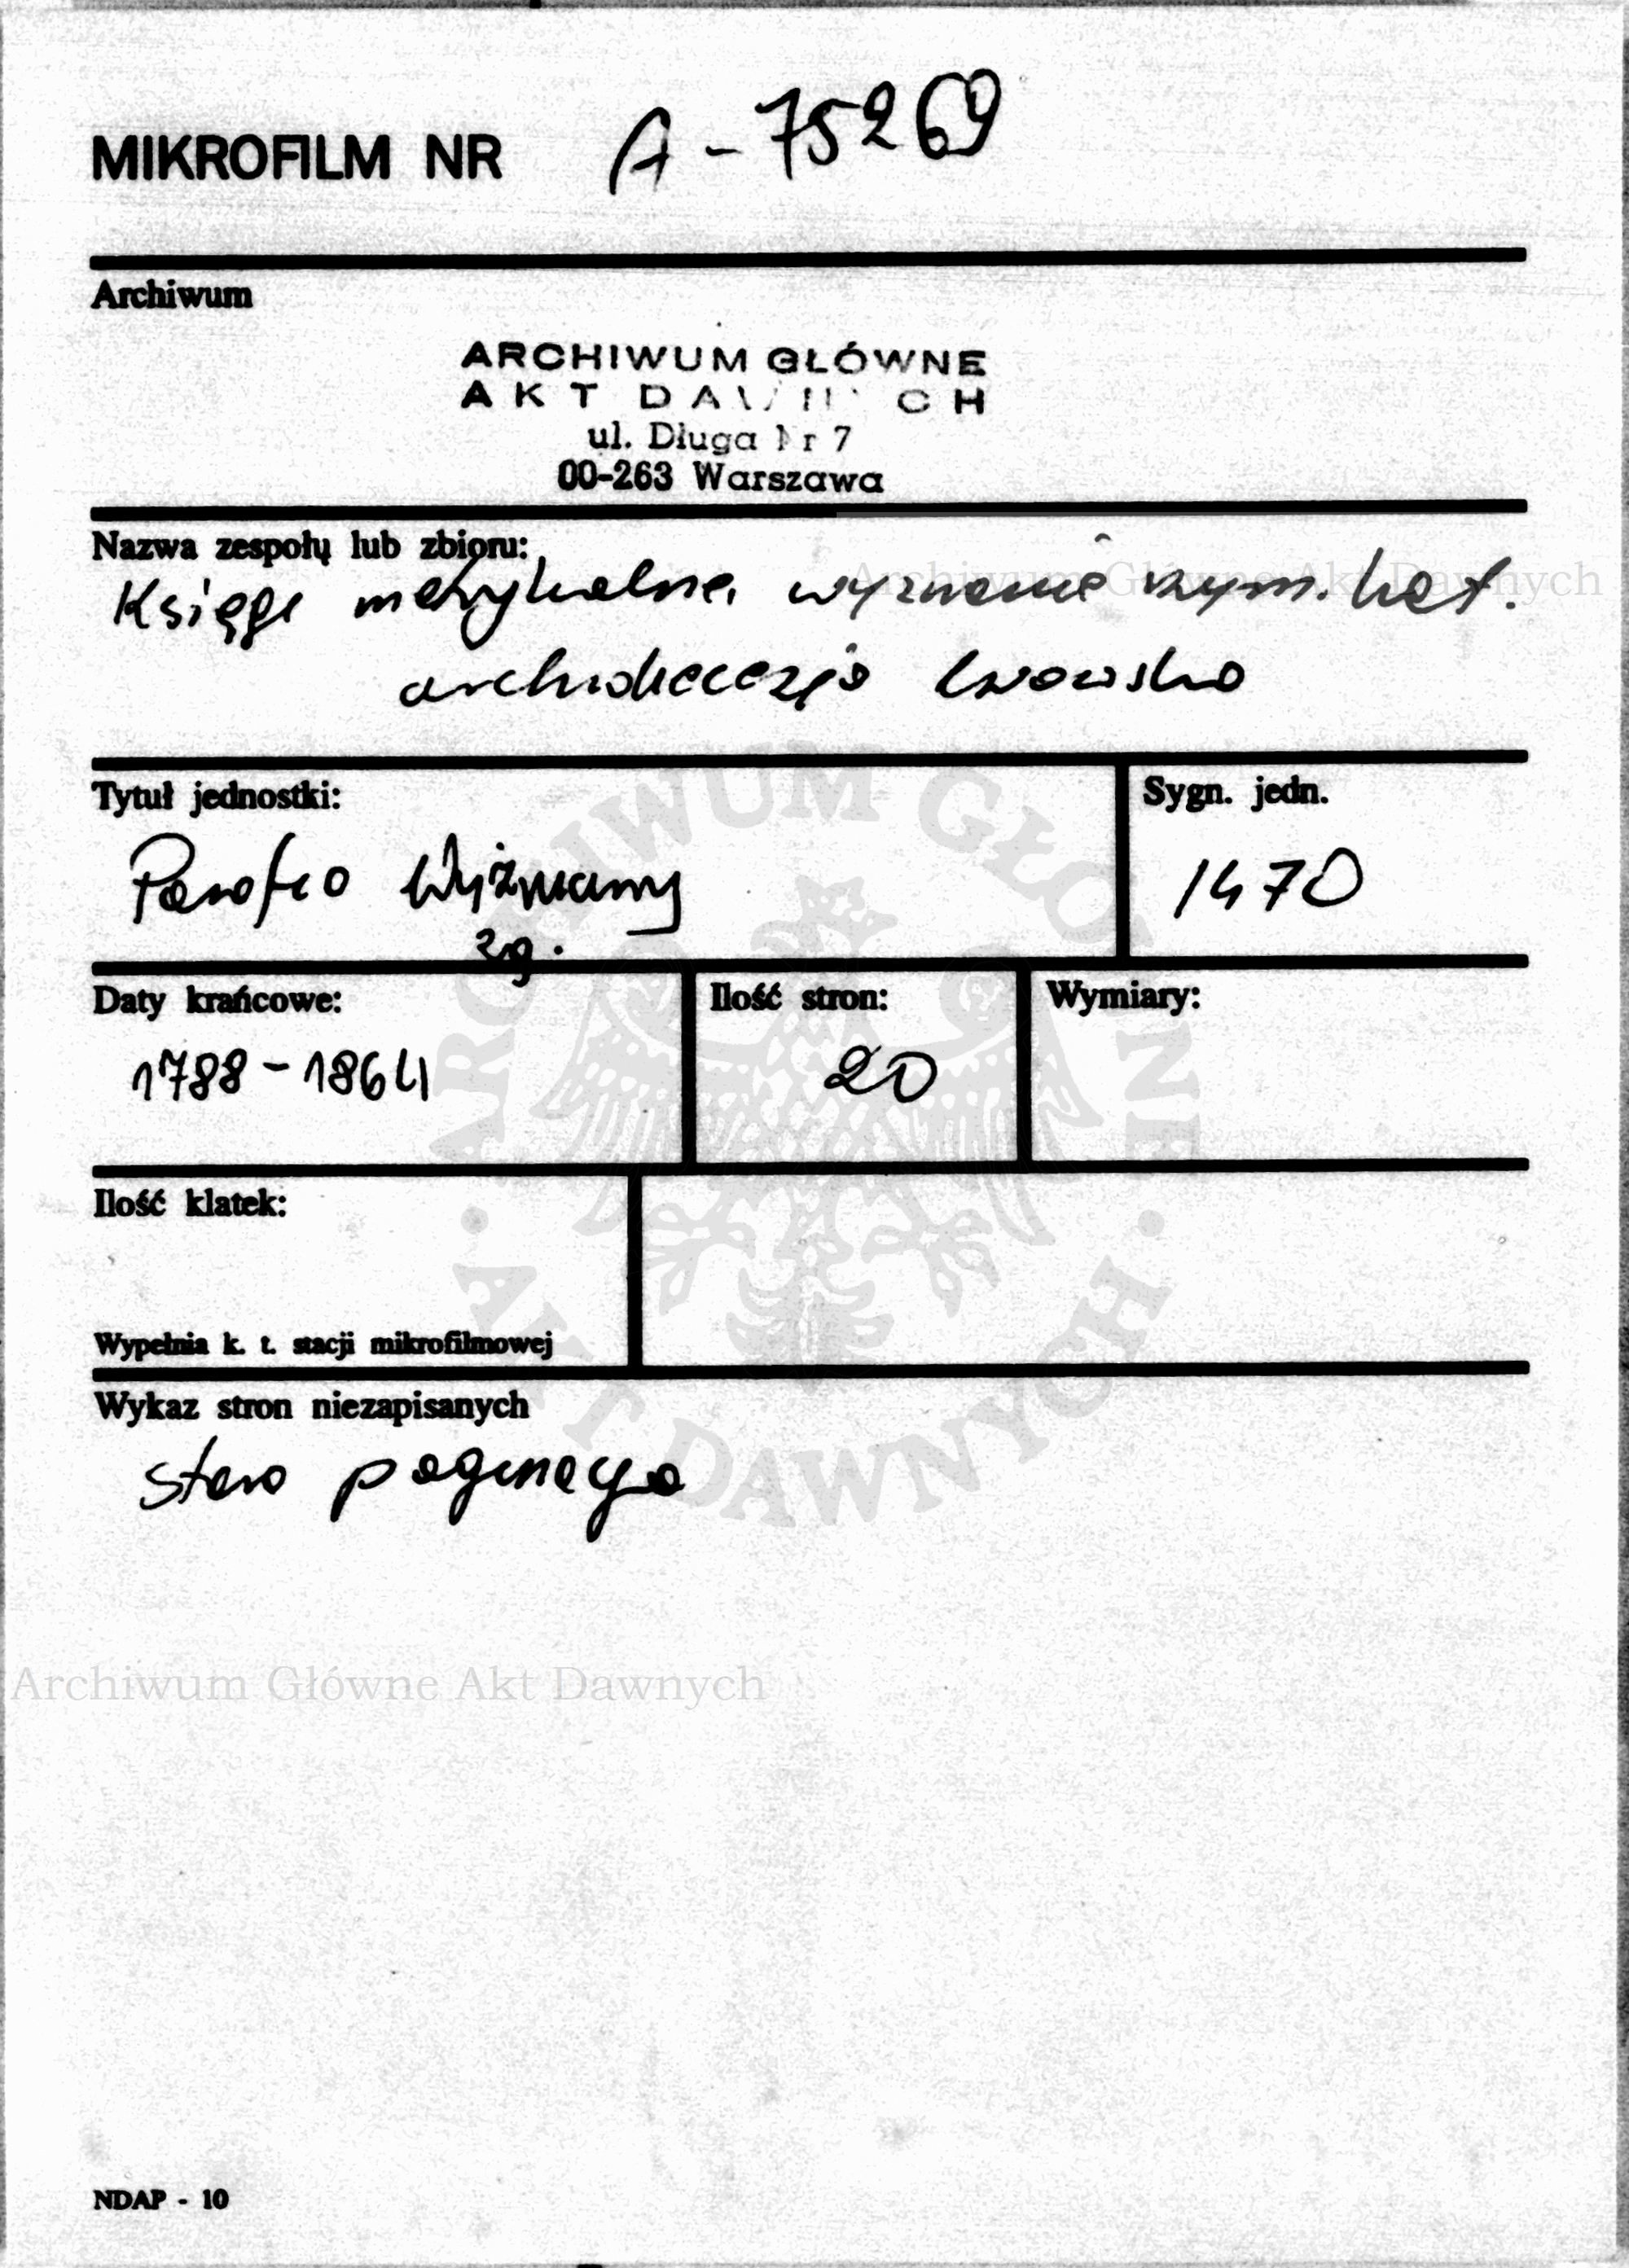 MIKROFILM NR A - 75269
Archiwum
ARCHIWUM GŁÓWNE
AKT DAWNYCH
ul. Długa Nr 7
00-263 Warszawa
Nazwa zespołu lub zbioru:
Archiwum Główne Akt Dawnych
Księgi metrykalne, wyznanie rzym. kat.
archidiecezja lwowska
Tytuł jednostki:
Sygn. jedn.
Parafia Wyżniany
1470
zg.
Daty krańcowe:
Ilość stron:
Wymiary:
1788 - 1864
20
Ilość klatek:
Wypełnia k. t. stacji mikrofilmowej
Wykaz stron niezapisanych
stara paginacja
ARCHIWUM GŁÓWNE
· AKT DAWNYCH ·
Archiwum Główne Akt Dawnych
NDAP - 10